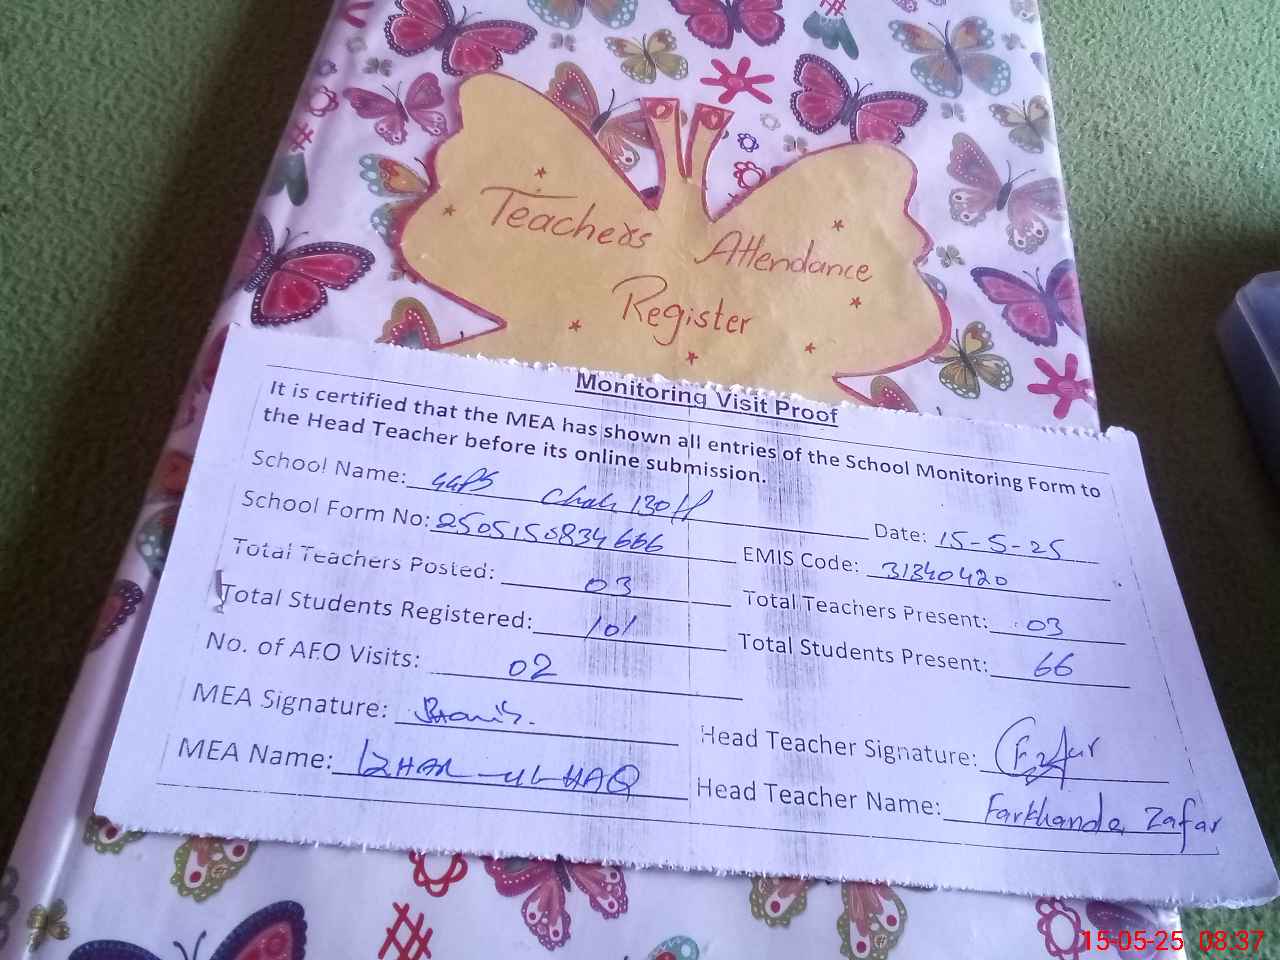 Teachers Attendance
Register
Monitoring Visit Proof
It is certified that the MEA has shown all entries of the School Monitoring Form to
the Head Teacher before its online submission.
School Name: GGPS Chak 130 Date: 15-5-25
School Form No: 2505150834666 EMIS Code: 31340420
Total Teachers Posted: 03 Total Teachers Present: 03
Total Students Registered: 101 Total Students Present: 66
No. of AEO Visits: 02
MEA Signature: Head Teacher Signature: F. Zafar
MEA Name: IZHAR-UL-HAQ Head Teacher Name: Farkhanda Zafar
15-05-25 08:37